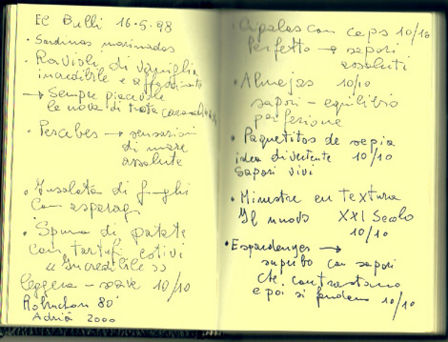 El Bulli 16.5.98
• Sardinas marinados
• Ravioli di vaniglia
incredibile e affascinante
→ Sempre piacevole
le uova di trota
• Percebes → sensazioni
di mare
assolute
• Insalata di funghi
con asparagi
• Spuma di patate
con tartufi estivi
"Incredibile"
leggera - soave 10/10
Robuchon 80'
Adrià 2000
• Cigalas con ceps 10/10
Perfetto → sapori
assoluti
• Almejas 10/10
sapori - equilibrio
perfezione
• Paquetitos de sepia
idea divertente 10/10
Sapori vivi
• Minestre en textura
Il nuovo XXI Secolo
10/10
• Espardenyes →
superbo con sapori
che contrastano
e poi si fondono 10/10